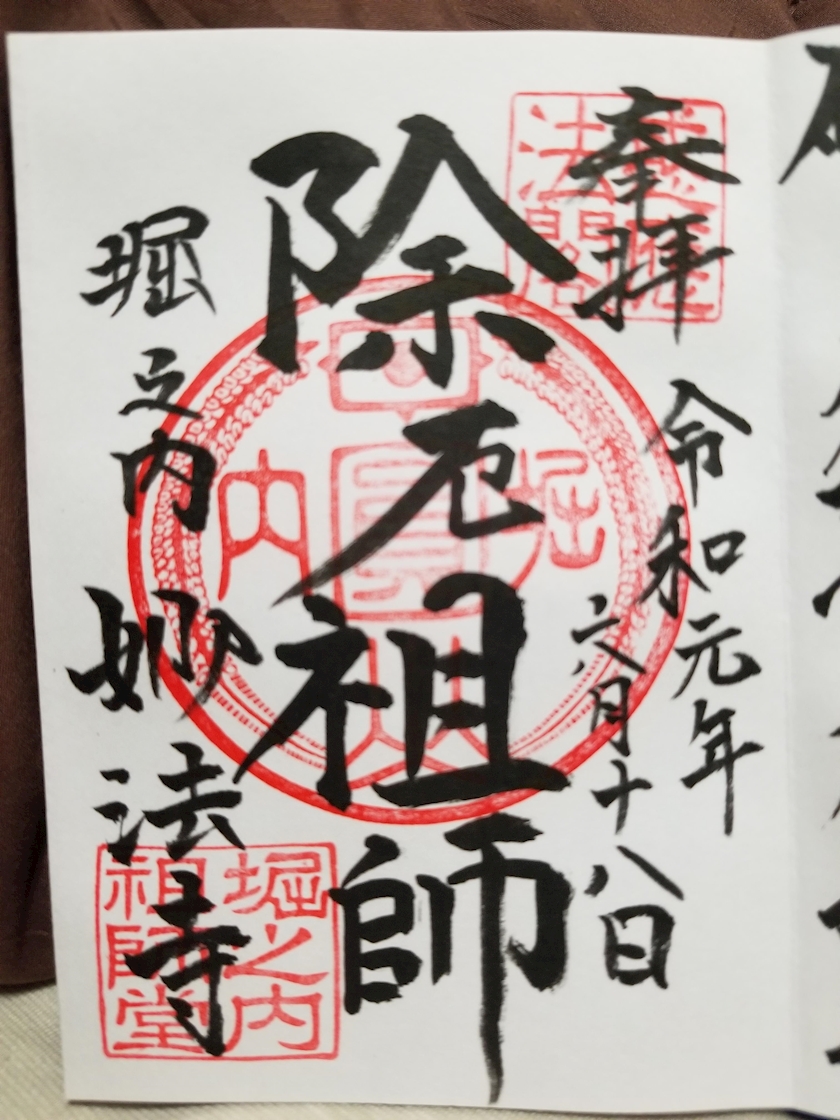 奉拝
令和元年
六月十八日
除厄祖師
堀之内
妙法寺
法閣
堀
内
山
堀之内
祖師堂